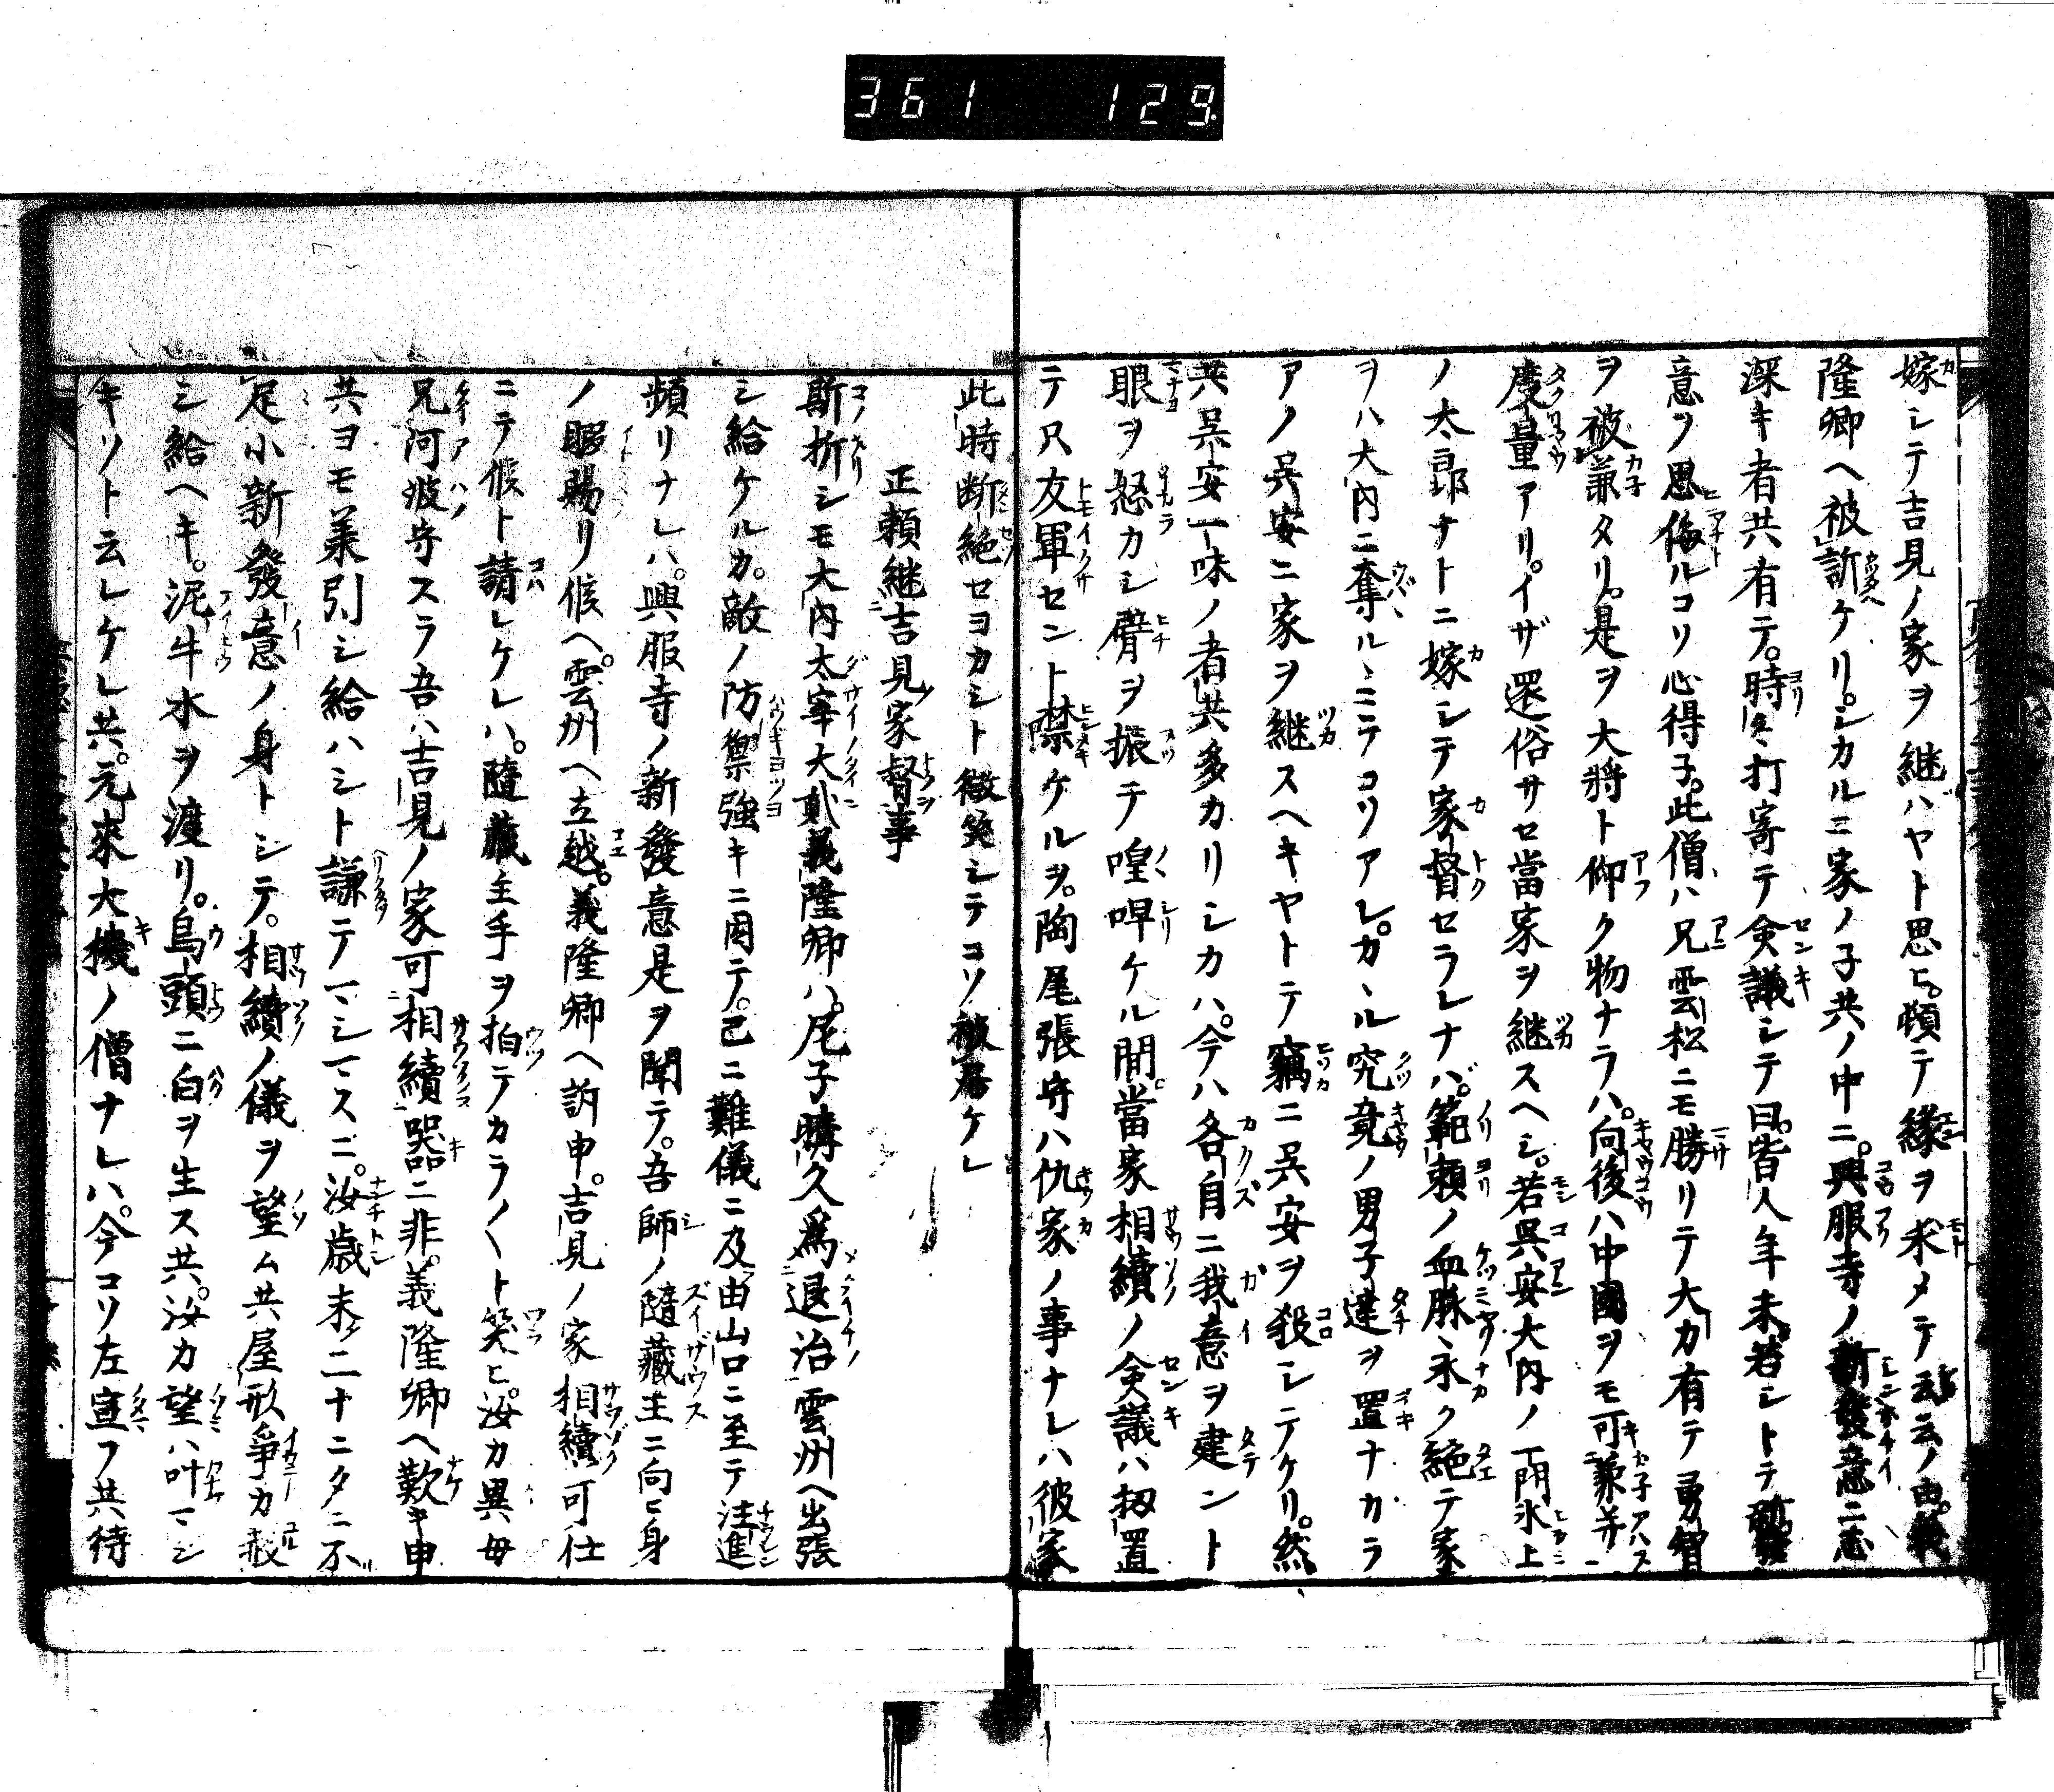 361 129
嫁シテ吉見ノ家ヲ継ハヤト思ヒ。頓テ縁ヲ求メテ云々ノ由。義
隆卿ヘ被訴ケリ。シカルニ家ノ子共ノ中ニ。興服寺ノ新發意ニ志
深キ者共有テ。時々打寄テ僉議シテ曰。皆人年未若シトテ
意ヲ思侮ルコソ心得子。此僧ハ兄雲松ニモ勝リテ大力有テ勇智
ヲ被兼タリ。是ヲ大将ト仰ク物ナラハ。向後ハ中國ヲモ可兼并
度量アリ。イザ還俗サセ當家ヲ継スヘシ。若呉安大内ノ一門氷上
ノ太郎ナトニ嫁シテ家督セラレナバ。範頼ノ血脉永ク絶テ家
ヲハ大内ニ奪ルヽニテコソアレ。カヽル究竟ノ男子達ヲ置ナカラ
アノ呉安ニ家ヲ継スヘキヤトテ竊ニ呉安ヲ殺シテケリ。然
共呉安一味ノ者共多カリシカハ。今ハ各自ニ我意ヲ建ント
眼ヲ怒カシ臂ヲ振テ喤嘷ケル間。當家相續ノ僉議ハ扨置
テ只友軍セント禁ケルヲ。陶尾張守ハ仇家ノ事ナレハ彼家
此時断絶セヨカシト微笑シテコソ被居ケレ
正頼継吉見家督事
斯折シモ大内太宰大貳義隆卿ハ。尼子晴久爲退治雲州ヘ出張
シ給ケルカ。敵ノ防禦強キニ因テ。已ニ難儀ニ及由山口ニ至テ注進
頻リナレハ。興服寺ノ新發意是ヲ聞テ。吾師ノ隨藏主ニ向ヒ身
ノ暇賜リ候ヘ。雲州ヘ立越。義隆卿ヘ訴申。吉見ノ家相續可仕
ニテ候ト請レケレハ。隨藏主手ヲ拍テカラ〱ト笑ヒ。汝カ異母
兄河波守スラ吾ハ吉見ノ家可相續器ニ非。義隆卿ヘ歎キ申
共ヨモ業引シ給ハシト謙テマシマスニ。汝歳未二十ニタニ不
足小新發意ノ身トシテ。相續ノ儀ヲ望ム共屋形争カ許
シ給ヘキ。泥牛水ヲ渡リ。烏頭ニ白ヲ生ス共。汝カ望ハ叶マシ
キソト云レケレ共。元來大機ノ僧ナレハ。今コソ左宣フ共待